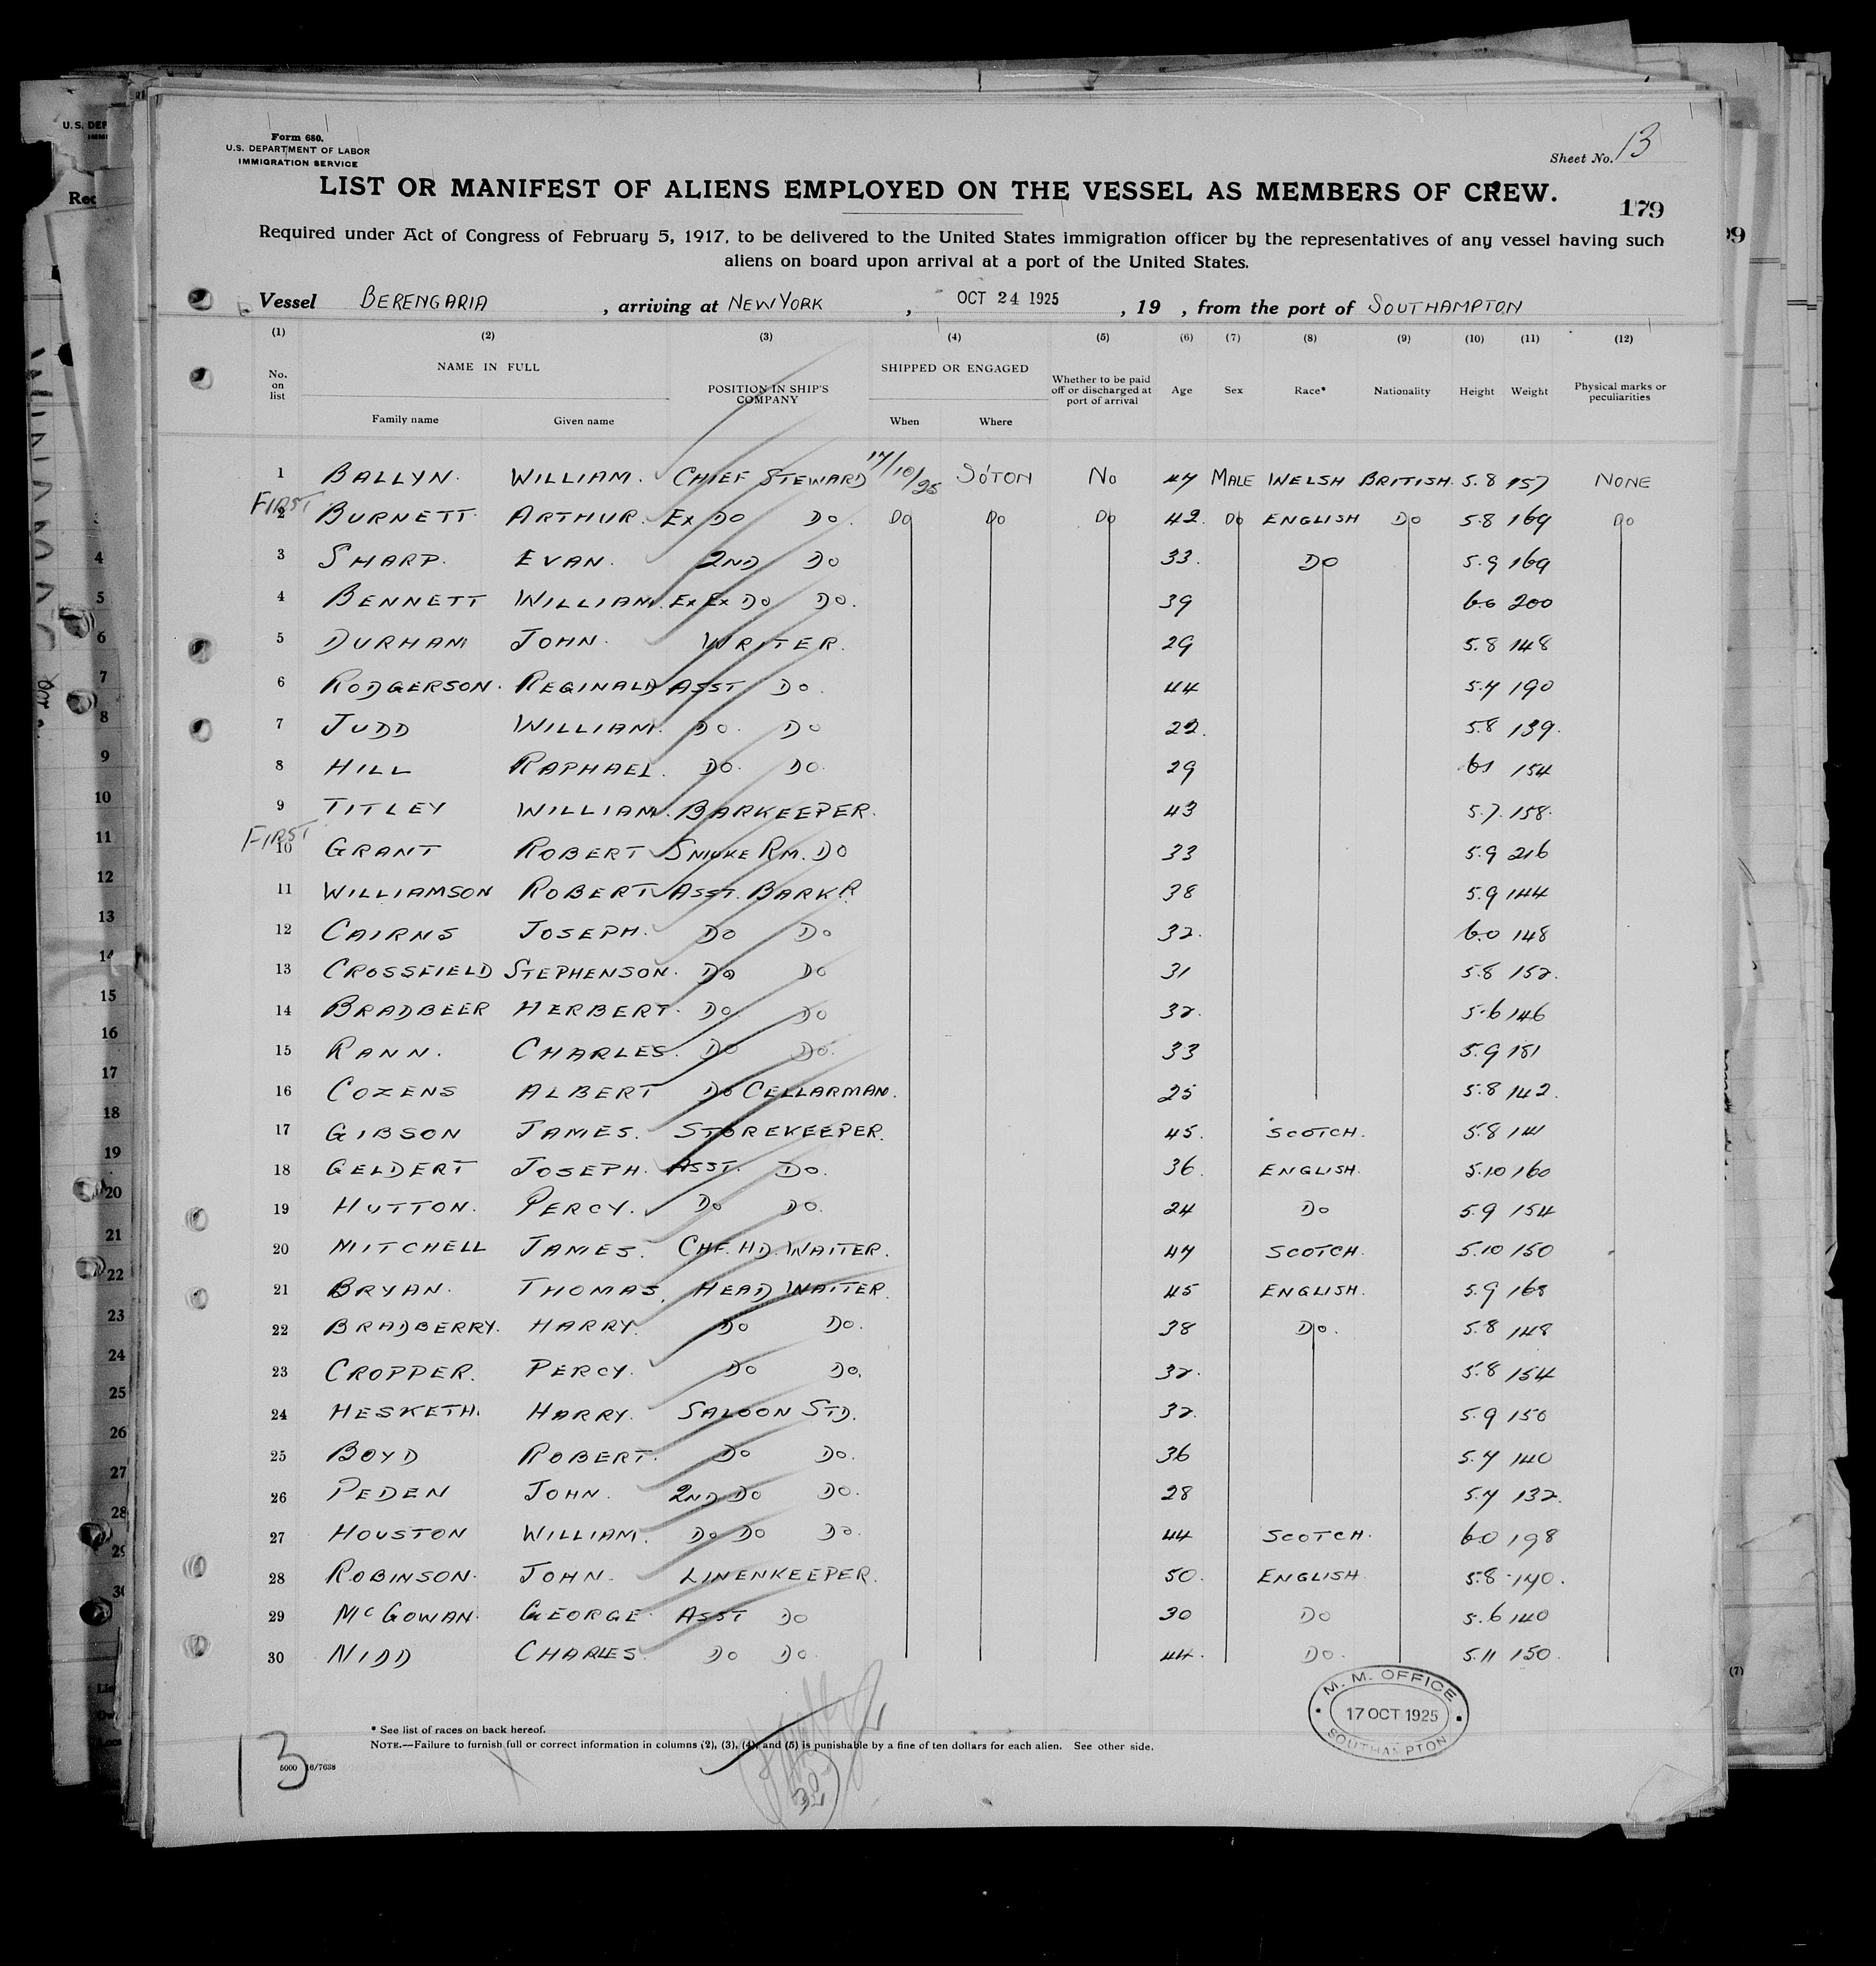 Form 680.
U.S. DEPARTMENT OF LABOR
IMMIGRATION SERVICE
Sheet No. 13
LIST OR MANIFEST OF ALIENS EMPLOYED ON THE VESSEL AS MEMBERS OF CREW.
179
Required under Act of Congress of February 5, 1917, to be delivered to the United States immigration officer by the representatives of any vessel having such
aliens on board upon arrival at a port of the United States.
Vessel BERENGARIA , arriving at NEW YORK , OCT 24 1925 , 19 , from the port of SOUTHAMPTON
(1) (2) (3) (4) (5) (6) (7) (8) (9) (10) (11) (12)
No. on list NAME IN FULL POSITION IN SHIP'S COMPANY SHIPPED OR ENGAGED Whether to be paid off or discharged at port of arrival Age Sex Race* Nationality Height Weight Physical marks or peculiarities
Family name Given name When Where
1 BALLYN. WILLIAM. CHIEF STEWARD 17/10/25 SO'TON No 47 MALE WELSH BRITISH. 5.8 157 NONE
FIRST
2 BURNETT ARTHUR. EX DO DO. DO DO DO 42. DO ENGLISH DO 5.8 169 DO
3 SHARP. EVAN. 2ND DO 33. DO 5.9 169
4 BENNETT WILLIAM. EX EX DO DO. 39 6.0 200
5 DURHAM JOHN. WRITER. 29 5.8 148
6 RODGERSON. REGINALD ASST DO. 44 5.7 190
7 JUDD WILLIAM. DO. DO 22. 5.8 139.
8 HILL RAPHAEL. DO. DO. 29 6.1 154
9 TITLEY WILLIAM. BARKEEPER. 43 5.7. 158.
FIRST
10 GRANT ROBERT SMOKE RM. DO 33 5.9 216
11 WILLIAMSON ROBERT ASST. BARKR. 38 5.9 144
12 CAIRNS JOSEPH. DO DO 32. 6.0 148
13 CROSSFIELD STEPHENSON. DO DO 31 5.8 152.
14 BRADBEER HERBERT. DO. DO 32. 5.6 146
15 RANN. CHARLES. DO DO. 33 5.9 181
16 COZENS ALBERT DO CELLARMAN. 25 5.8 142.
17 GIBSON JAMES. STOREKEEPER. 45. SCOTCH. 5.8 141
18 GELDERT JOSEPH. ASST. DO. 36. ENGLISH. 5.10 160
19 HUTTON. PERCY. DO DO. 24 DO 5.9 154
20 MITCHELL JAMES. CHF. HD. WAITER. 47 SCOTCH. 5.10 150
21 BRYAN. THOMAS. HEAD WAITER. 45 ENGLISH. 5.9 168
22 BRADBERRY. HARRY. DO DO. 38 DO. 5.8 148
23 CROPPER. PERCY. DO DO. 32. 5.8 154
24 HESKETH. HARRY. SALOON STD. 32. 5.9 150
25 BOYD ROBERT. DO DO. 36 5.7 140
26 PEDEN JOHN. 2ND DO DO. 28 5.7 132.
27 HOUSTON WILLIAM. DO DO DO. 44 SCOTCH. 6.0 198
28 ROBINSON. JOHN. LINENKEEPER. 50. ENGLISH. 5.8 140.
29 McGOWAN. GEORGE. ASST DO 30 DO 5.6 140
30 NIDD CHARLES. DO DO. 44. DO. 5.11 150.
M. M. OFFICE
17 OCT 1925
SOUTHAMPTON
* See list of races on back hereof.
NOTE.—Failure to furnish full or correct information in columns (2), (3), (4), and (5) is punishable by a fine of ten dollars for each alien. See other side.
13
5000 16/7638